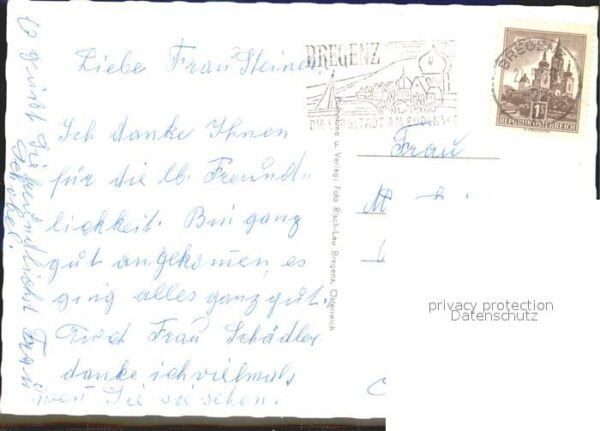 Liebe Frau Steina
Ich danke Ihnen
für die lb. Freund-
lichkeit. Bin ganz
gut angekomen, es
ging alles ganz gut.
Auch Frau Schädler
danke ich vielmals
wen Sie sie sehen.
Es grüßt Sie freundlichst Frau
BREGENZ
DIE FESTSTADT AM BODENSEE
BREGENZ
1S
REPUBLIK ÖSTERREICH
Aufnahme u. Verlag: Foto Risch-Lau, Bregenz, Österreich
Frau
M
privacy protection
Datenschutz